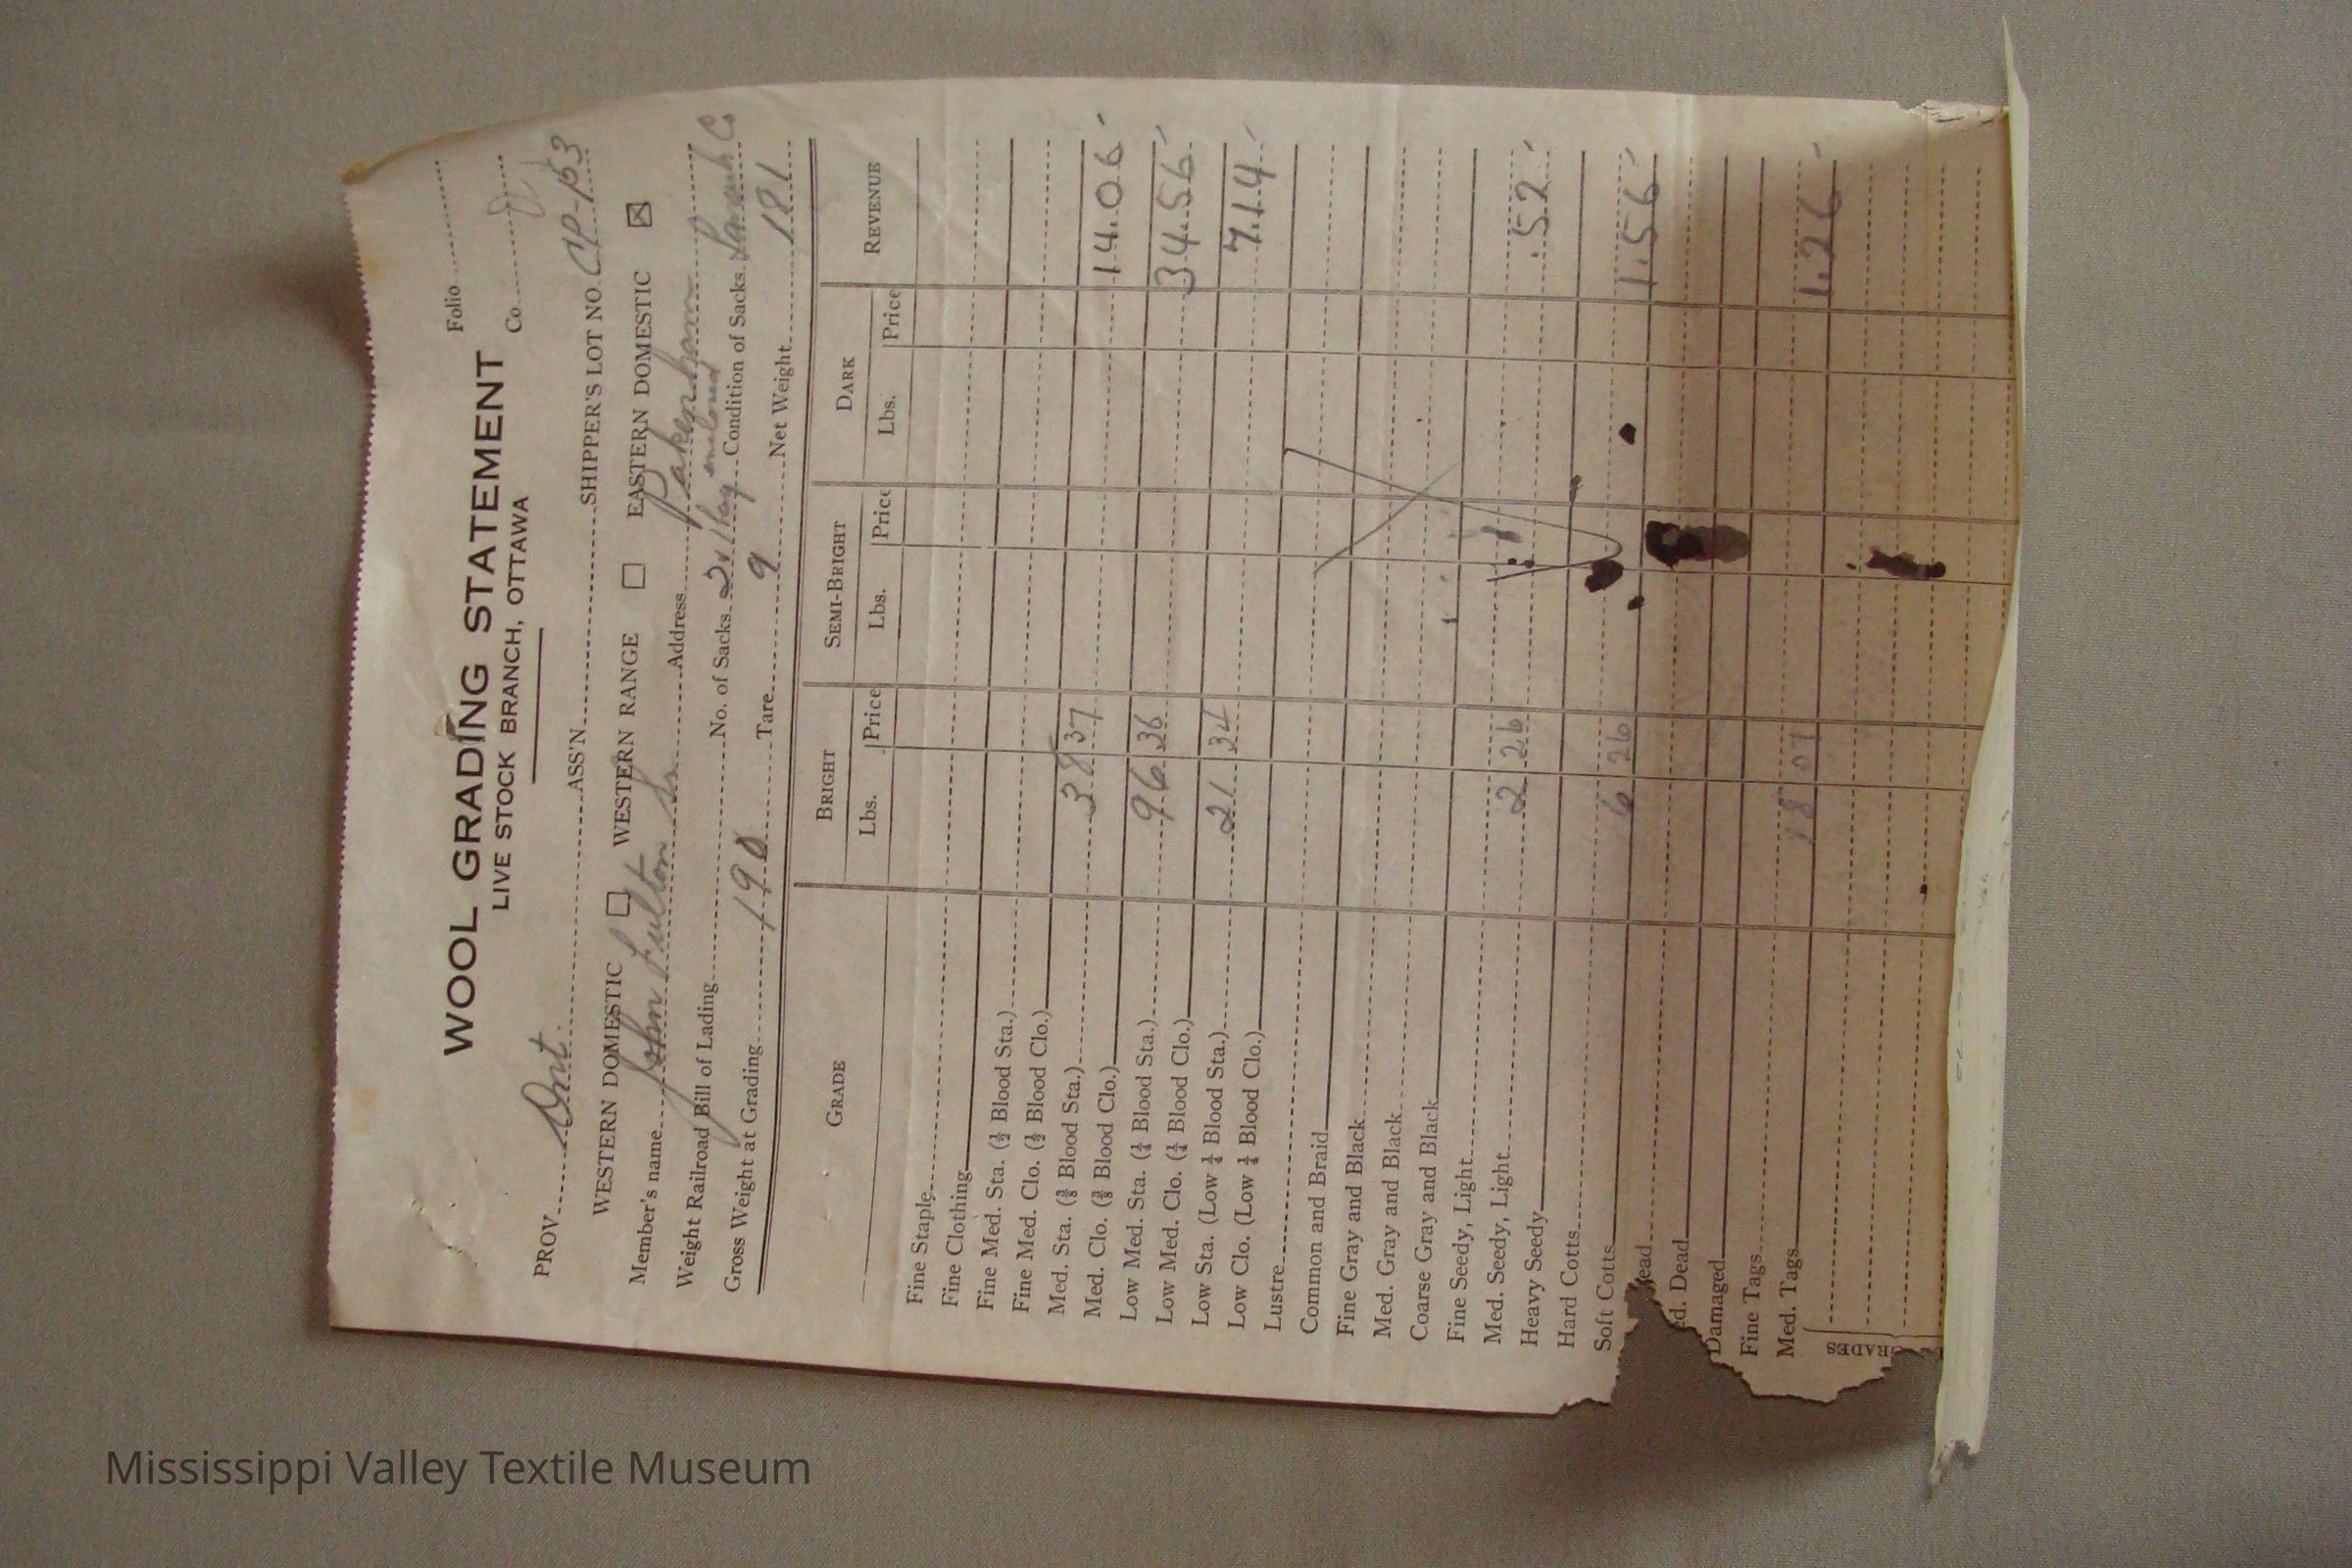 Folio
WOOL GRADING STATEMENT
LIVE STOCK BRANCH, OTTAWA Co.
PROV. Ont. ASS'N. SHIPPER'S LOT NO.
WESTERN DOMESTIC ☐ WESTERN RANGE ☐ EASTERN DOMESTIC ☒
Member's name John Fulton Sr. Address Pakenham
Weight Railroad Bill of Lading No. of Sacks Condition of Sacks
Gross Weight at Grading 190 Tare 9 Net Weight 181
GRADE BRIGHT SEMI-BRIGHT DARK REVENUE
Lbs. Price Lbs. Price Lbs. Price
Fine Staple
Fine Clothing
Fine Med. Sta. (½ Blood Sta.)
Fine Med. Clo. (½ Blood Clo.)
Med. Sta. (⅜ Blood Sta.) 38 37 14.06
Med. Clo. (⅜ Blood Clo.)
Low Med. Sta. (¼ Blood Sta.) 96 36 34.56
Low Med. Clo. (¼ Blood Clo.)
Low Sta. (Low ¼ Blood Sta.) 21 34 7.14
Low Clo. (Low ¼ Blood Clo.)
Lustre
Common and Braid
Fine Gray and Black
Med. Gray and Black
Coarse Gray and Black
Fine Seedy, Light
Med. Seedy, Light 2 26 .52
Heavy Seedy
Hard Cotts
Soft Cotts 6 26 1.56
ead
d. Dead
Damaged
Fine Tags
Med. Tags 18 07 1.26
GRADES
Mississippi Valley Textile Museum